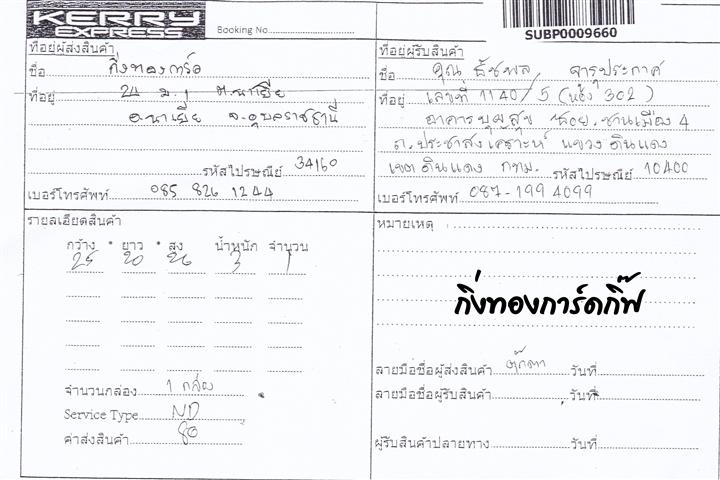 KERRY
EXPRESS
Booking No.
SUBP0009660
ที่อยู่ผู้ส่งสินค้า
ชื่อ กิ่งทองการ์ด
ที่อยู่ 24 ม.1 ต.นาเยีย
อ.นาเยีย จ.อุบลราชธานี
รหัสไปรษณีย์ 34160
เบอร์โทรศัพท์ 085 826 1244
ที่อยู่ผู้รับสินค้า
ชื่อ คุณ ธัชพล จารุประกาศ
ที่อยู่ เลขที่ 1140/5 (ห้อง 302)
อาคาร บุญสุข ซอย.ชานเมือง 4
ถ.ประชาสงเคราะห์ แขวง ดินแดง
เขต ดินแดง กทม. รหัสไปรษณีย์ 10400
เบอร์โทรศัพท์ 087-199 4099
รายละเอียดสินค้า
กว้าง * ยาว * สูง น้ำหนัก จำนวน
25 20 26 3 1
จำนวนกล่อง 1 กล่อง
Service Type ND
ค่าส่งสินค้า 80
หมายเหตุ
กิ่งทองการ์ดกิ๊ฟ
ลายมือชื่อผู้ส่งสินค้า ตุ๊กตา วันที่
ลายมือชื่อผู้รับสินค้า วันที่
ผู้รับสินค้าปลายทาง วันที่